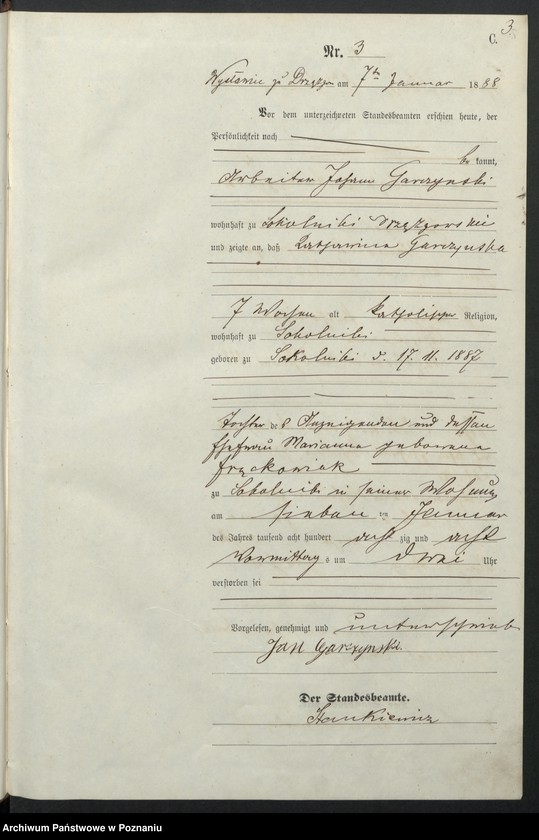 3.
C.
Nr. 3
am 7ten Januar 1888
Vor dem unterzeichneten Standesbeamten erschien heute, der
Persönlichkeit nach
bekannt,
Arbeiter Johann Garczynski
wohnhaft zu Sokolniki
und zeigte an, daß Katharina Garczynska
7 Wochen alt katholischer Religion,
wohnhaft zu Sokolniki
geboren zu Sokolniki d. 17. 11. 1887
Tochter des Anzeigenden und dessen
Ehefrau Marianna geborene
Frąckowiak
zu Sokolniki in seiner Wohnung
am sieben ten Januar
des Jahres tausend acht hundert acht zig und acht
Vormittags um drei Uhr
verstorben sei
Vorgelesen, genehmigt und unterschrieben
Jan Garzynski.
Der Standesbeamte.
Stankiewicz
Archiwum Państwowe w Poznaniu